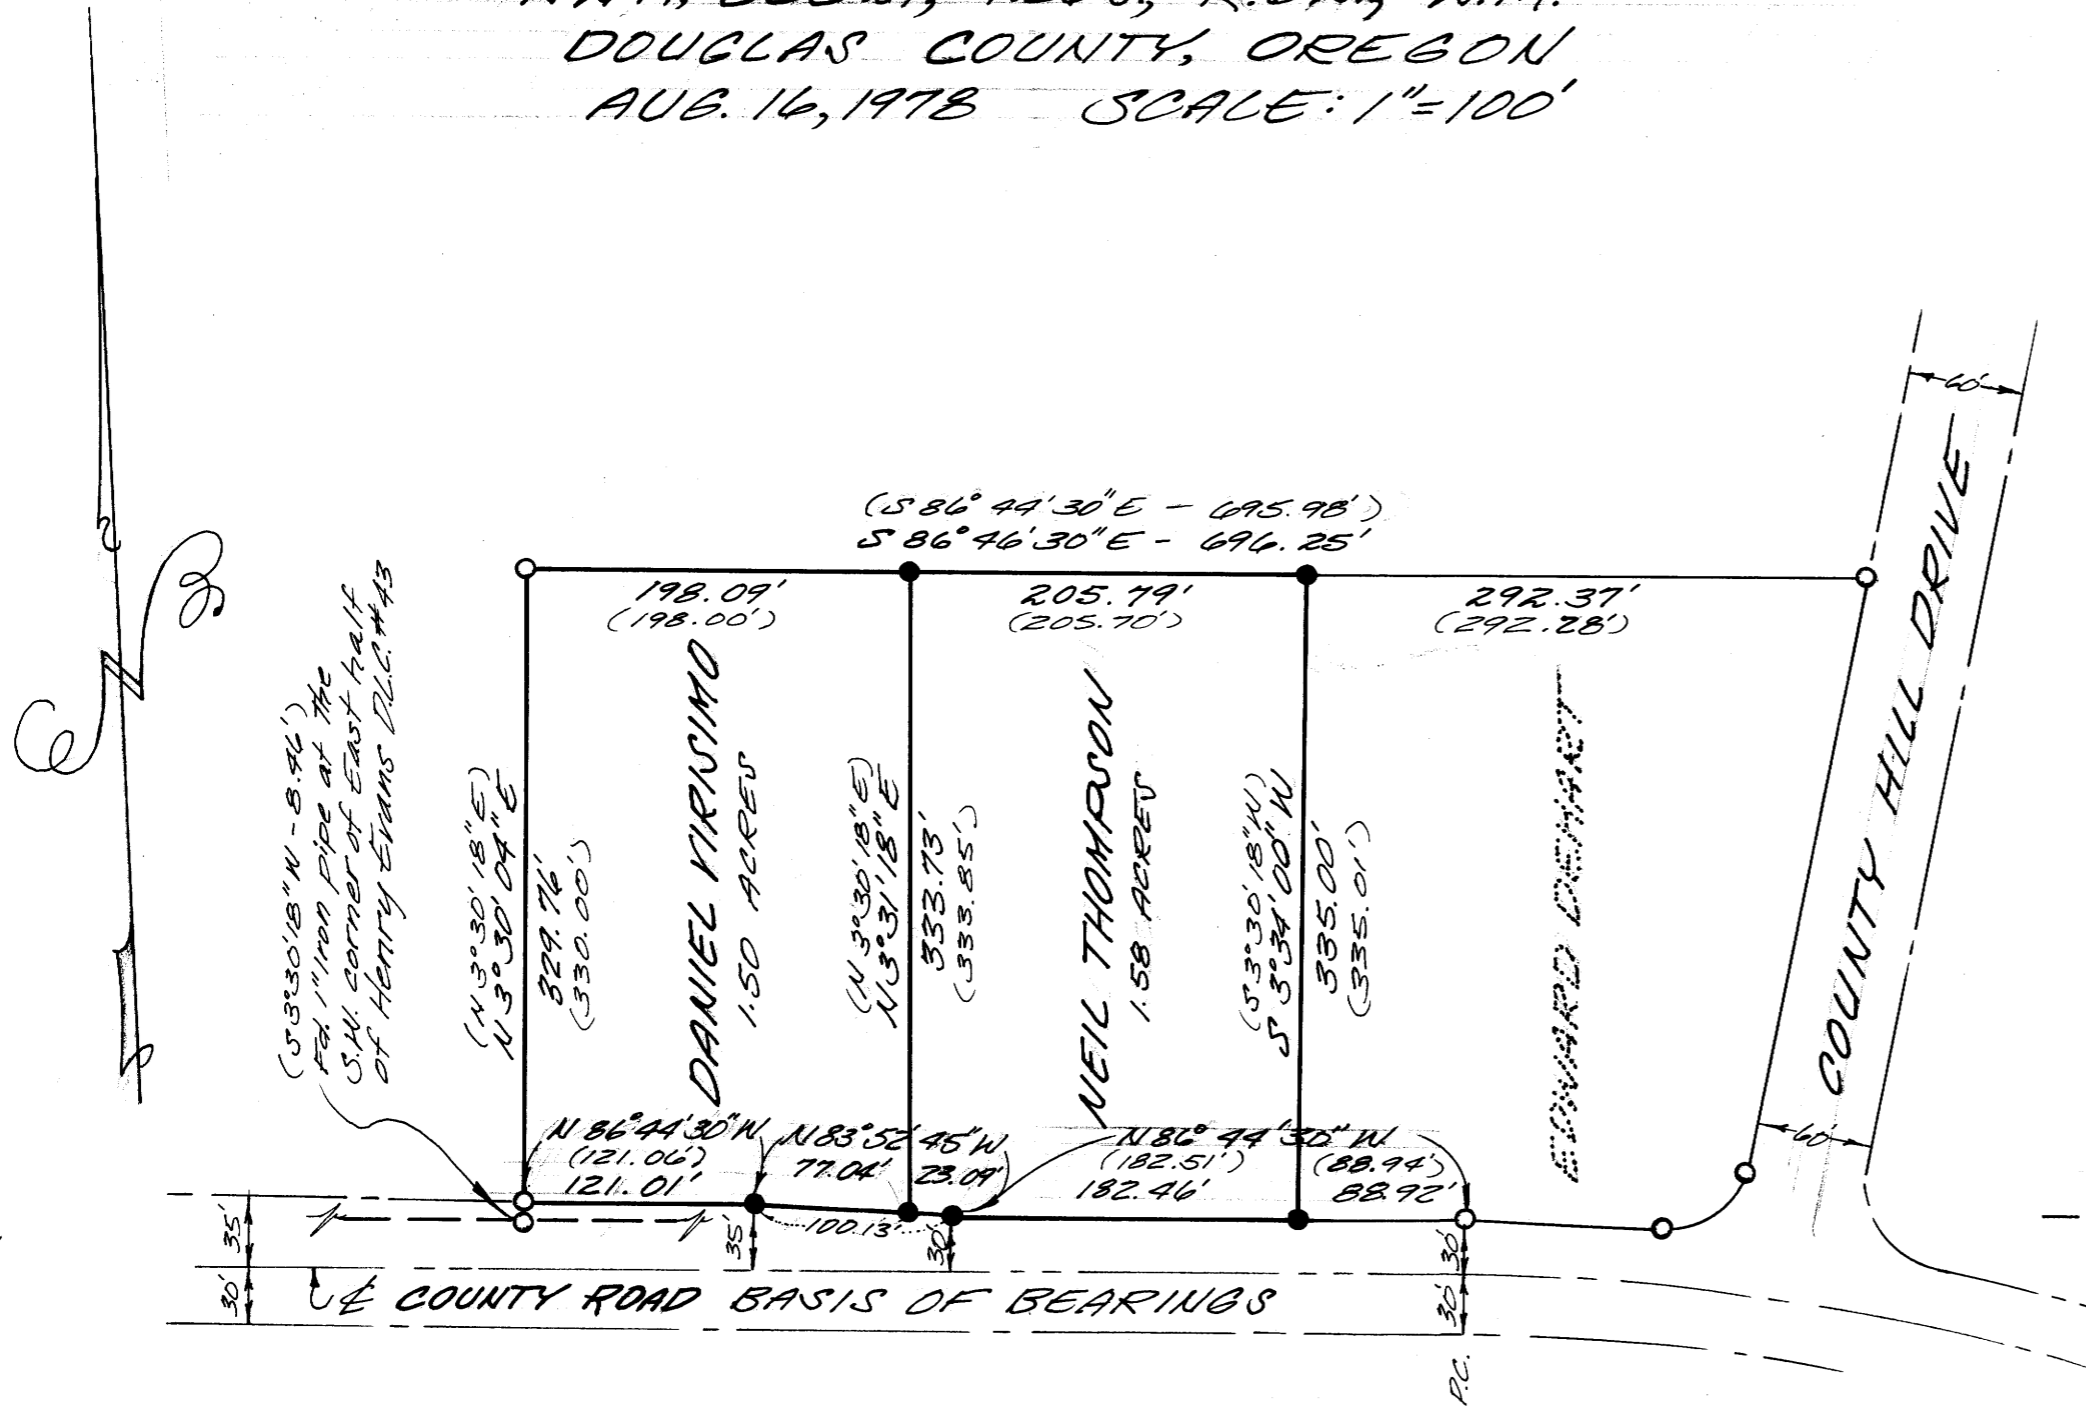 DOUGLAS COUNTY, OREGON
AUG. 16, 1978 SCALE: 1"=100'
(S 86° 44' 30" E - 695.98')
S 86° 46' 30" E - 696.25'
198.09'
(198.00')
205.79'
(205.70')
292.37'
(292.28')
60'
COUNTY HILL DRIVE
60'
(S 3° 30' 18" W - 8.46')
Fd. 1" Iron pipe at the
S.W. corner of East half
of Henry Evans D.L.C. #43
(N 3° 30' 18" E)
N 3° 30' 04" E
329.76'
(330.00')
DANIEL VIRISIMO
1.50 ACRES
(N 3° 30' 18" E)
N 3° 31' 18" E
333.73'
(333.85')
NEIL THOMPSON
1.58 ACRES
(S 3° 30' 18" W)
S 3° 34' 00" W
335.00'
(335.01')
EDWARD DEHART
N 86° 44' 30" W
(121.06')
121.01'
N 83° 52' 45" W
77.04'
23.09'
100.13'
N 86° 44' 30" W
(182.51')
182.46'
(88.94')
88.92'
35'
30'
35'
30'
30'
30'
P.C.
℄ COUNTY ROAD BASIS OF BEARINGS